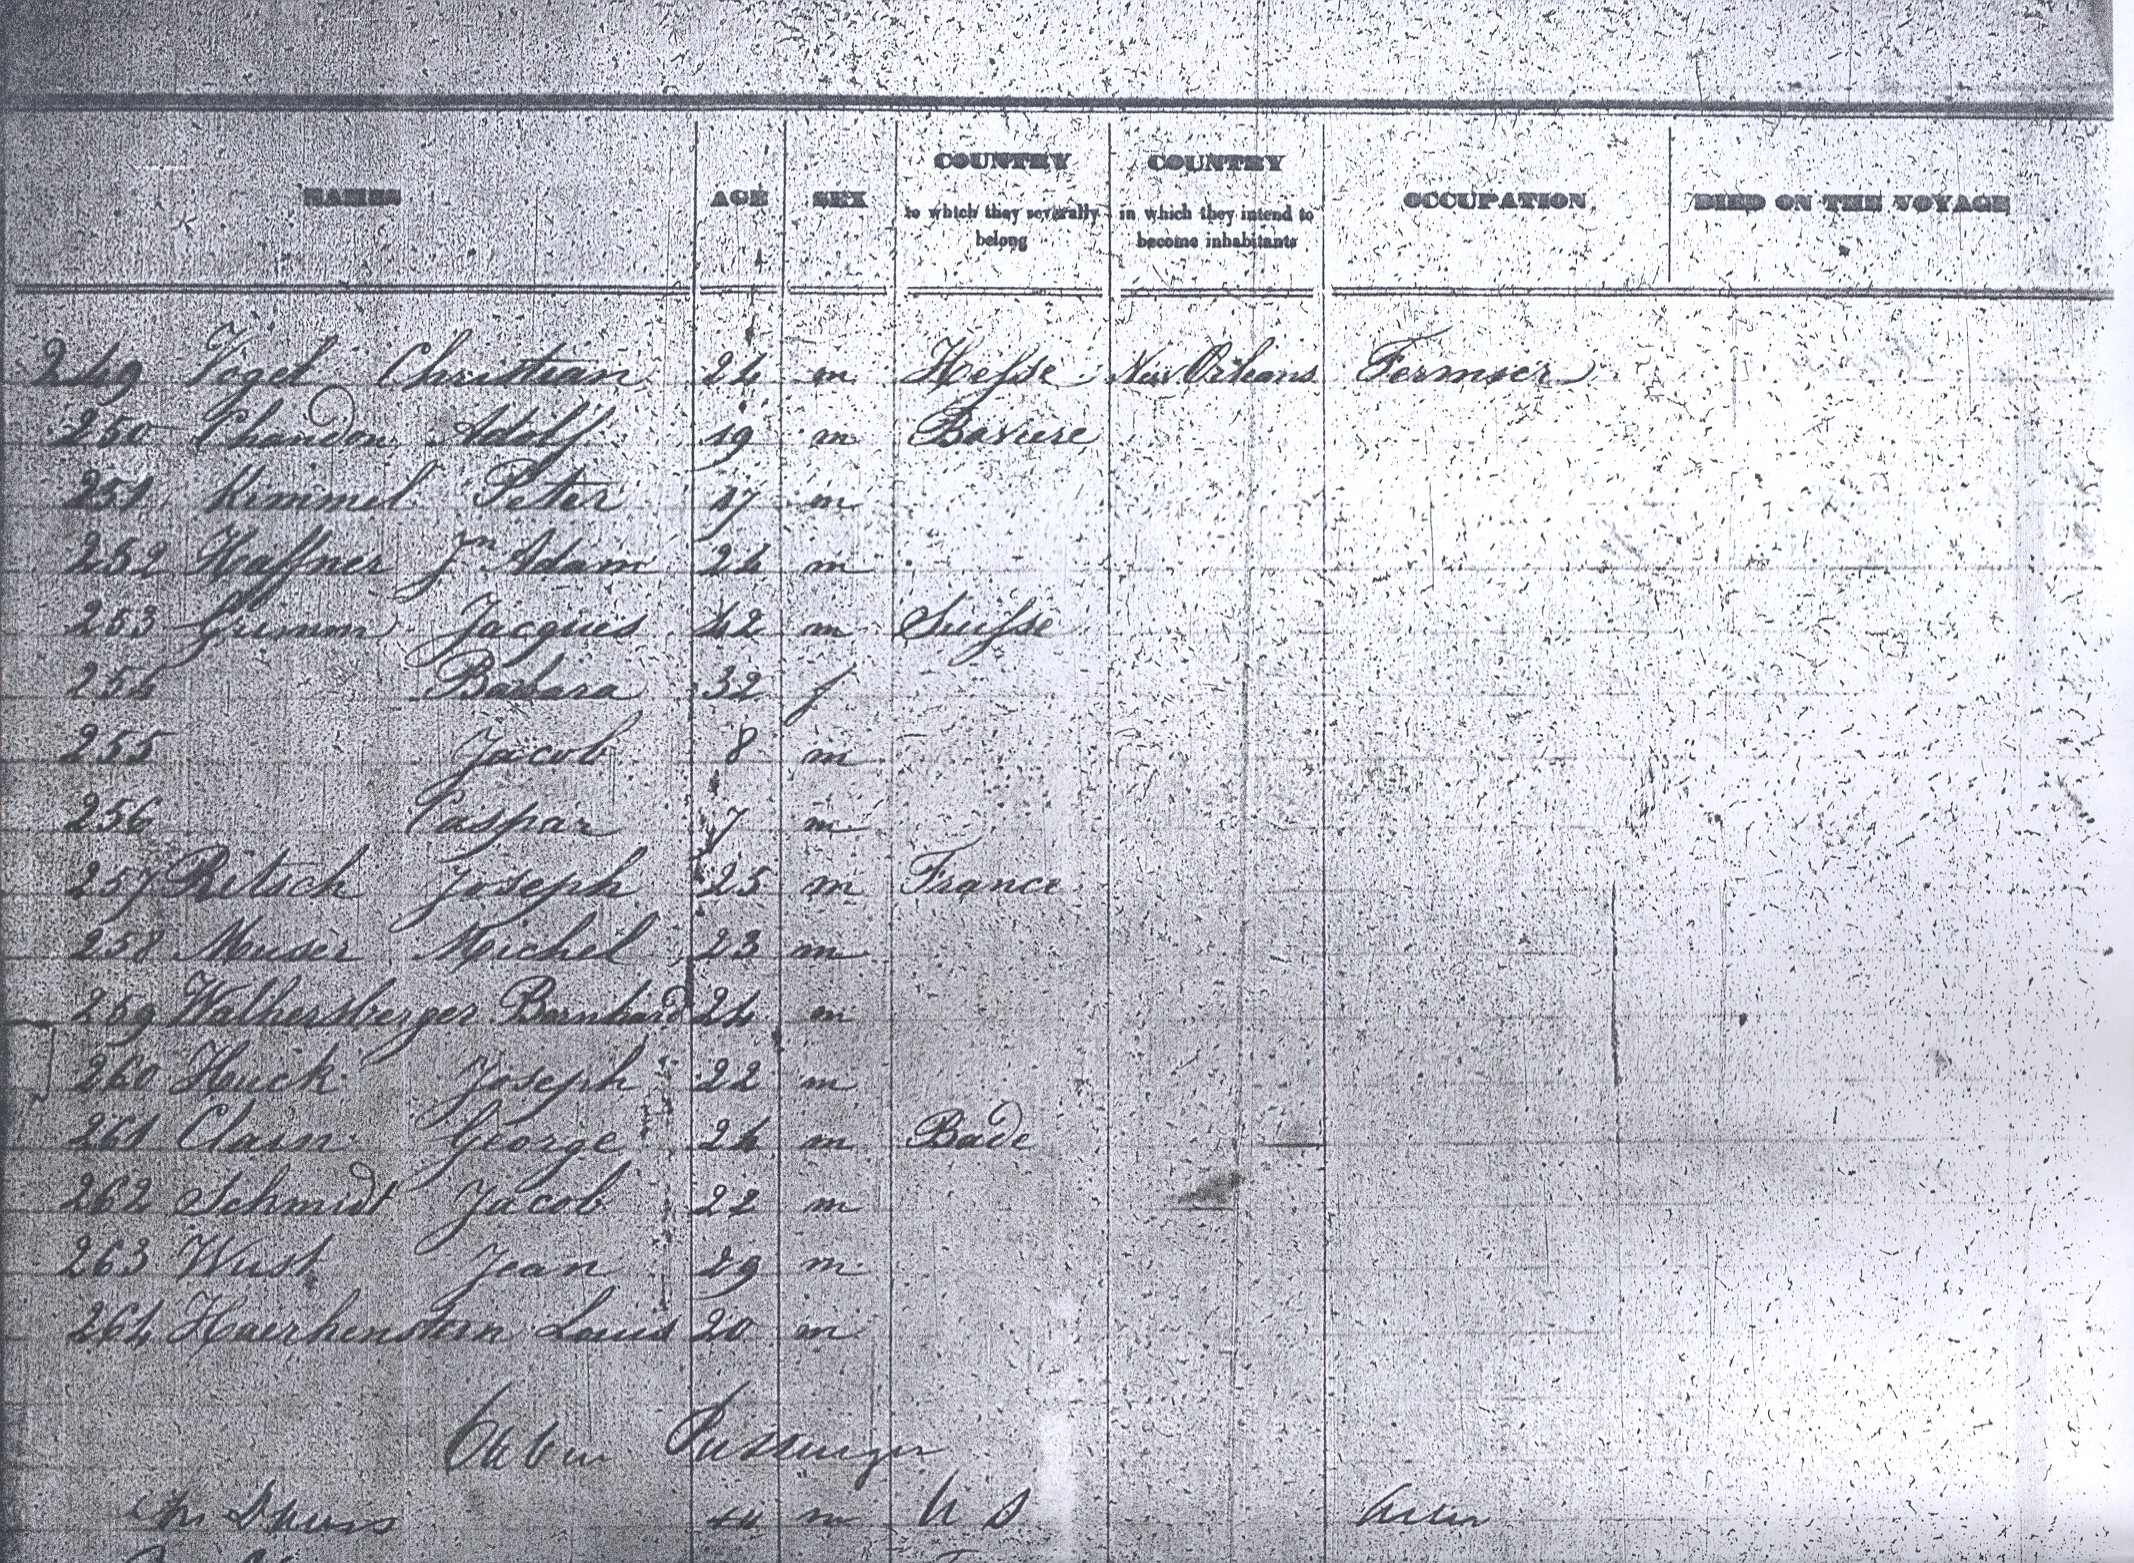 NAMES AGE SEX COUNTRY to which they severally belong COUNTRY in which they intend to become inhabitants OCCUPATION DIED ON THE VOYAGE
249 Vogel Christian 24 m Hesse New Orleans Fermier
250 Chandon Adolf 19 m Baviere
251 Kimmel Peter 27 m
252 Haffner Jn Adam 24 m
253 Grimm Jacques 42 m Suisse
254 Barbara 32 f
255 Jacob 8 m
256 Caspar 7 m
257 Ritsch Joseph 25 m France
258 Muser Michel 23 m
259 Walhersberger Bernhard 24 m
260 Hauck Joseph 22 m
261 Clasn George 24 m Bade
262 Schmidt Jacob 22 m
263 Wust Jean 29 m
264 Louis 20 m
Cabin Passenger
44 m U S